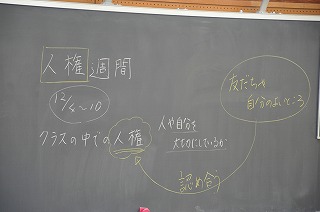 人権週間
12/4～10
クラスの中での人権
人や自分を
大切にしているか
友だちや
自分のよいところ
認め合う